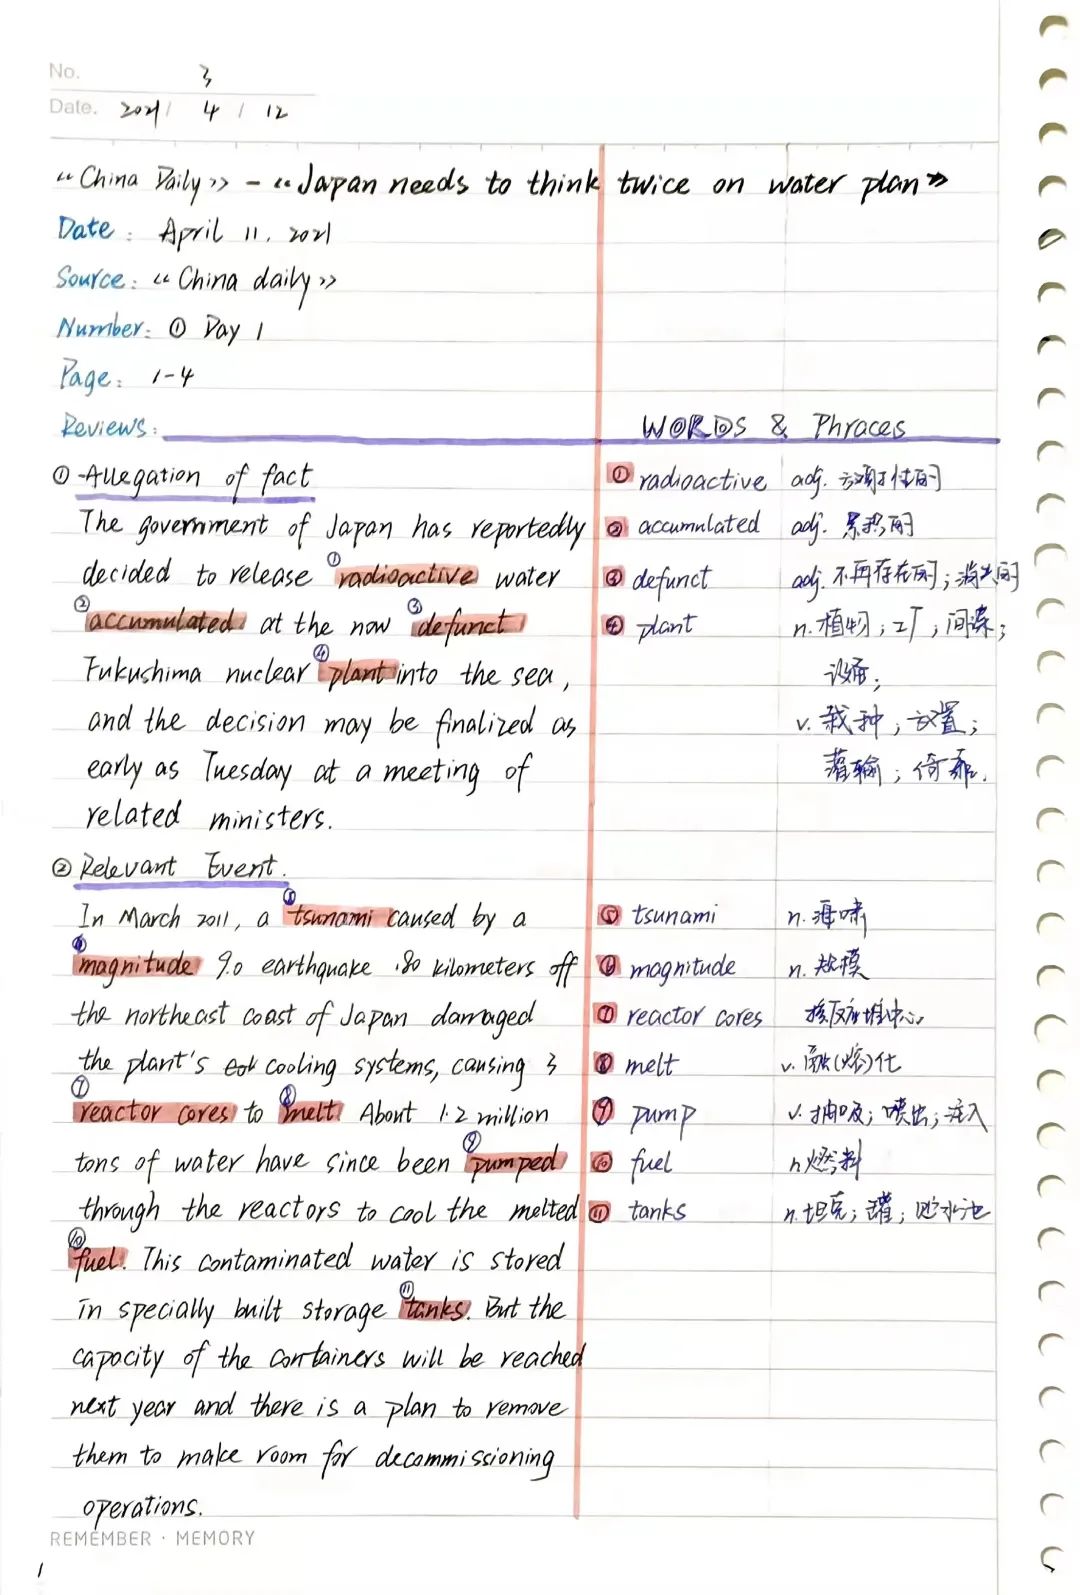 No. 3
Date. 2021/ 4 / 12
《China Daily》 - 《Japan needs to think twice on water plan》
Date: April 11, 2021
Source: 《China daily》
Number: ① Day 1
Page: 1-4
Reviews: WORDS & Phraces
① Allegation of fact
The government of Japan has reportedly
decided to release ①radioactive water
②accumulated at the now ③defunct
Fukushima nuclear ④plant into the sea,
and the decision may be finalized as
early as Tuesday at a meeting of
related ministers.
② Relevant Event.
In March 2011, a ⑤tsunami caused by a
⑥magnitude 9.0 earthquake 180 kilometers off
the northeast coast of Japan damaged
the plant's cooling systems, causing 3
⑦reactor cores to ⑧melt. About 1.2 million
tons of water have since been ⑨pumped
through the reactors to cool the melted
⑩fuel. This contaminated water is stored
in specially built storage ⑪tanks. But the
capacity of the containers will be reached
next year and there is a plan to remove
them to make room for decommissioning
operations.
① radioactive adj. 放射性的
② accumulated adj. 累积的
③ defunct adj. 不再存在的；消失的
④ plant n. 植物；工厂；间谍；
设备；
v. 栽种；放置；
灌输；倚靠.
⑤ tsunami n. 海啸
⑥ magnitude n. 规模
⑦ reactor cores 核反应堆中心
⑧ melt v. 融(熔)化
⑨ pump v. 抽吸；喷出；注入
⑩ fuel n 燃料
⑪ tanks n. 坦克；罐；贮水池
REMEMBER · MEMORY
1